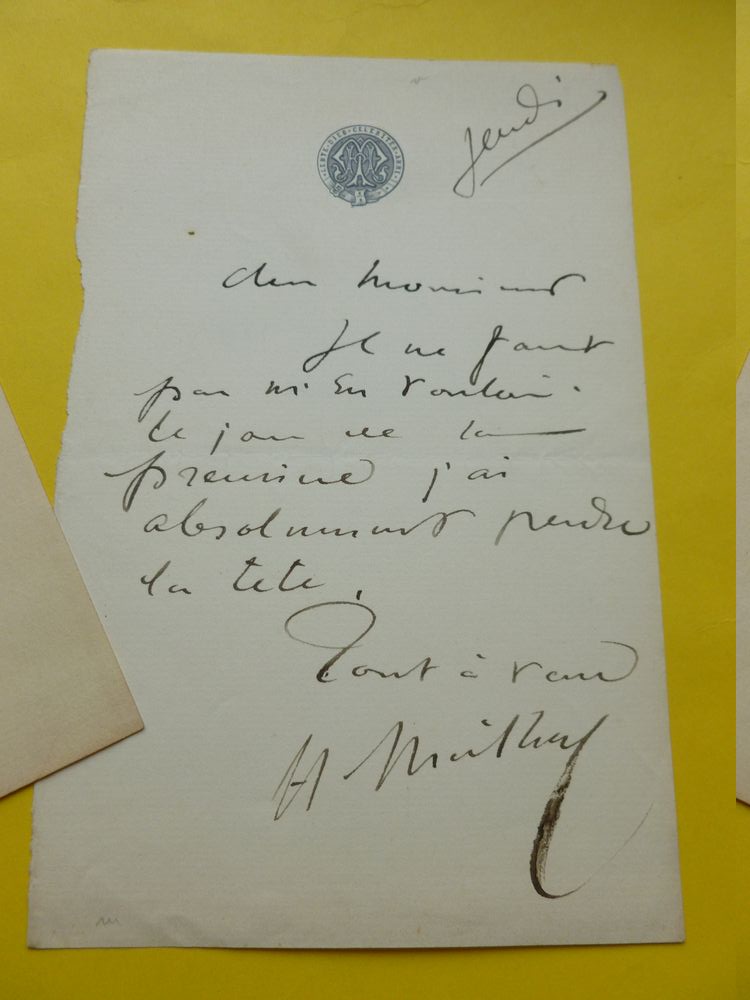 Jeudi
cher Monsieur
Il ne faut
pas m'en vouloir.
le jour de la
première j'ai
absolument perdu
la tête.
Tout à vous
H Meilhac